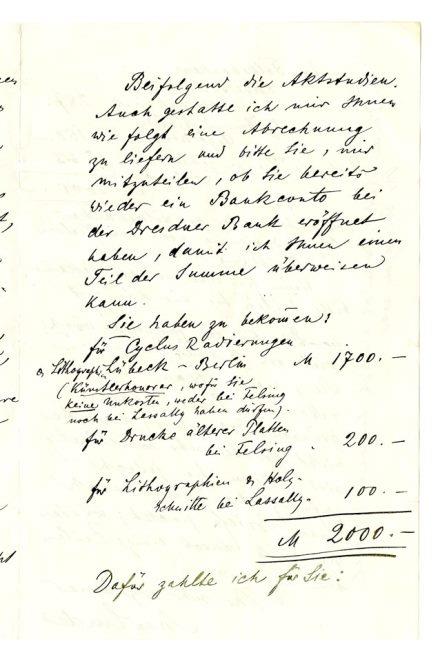 Beifolgend die Aktstudien.
Auch gestatte ich mir Ihnen
wie folgt eine Abrechnung
zu liefern und bitte Sie, mir
mitzuteilen, ob Sie bereits
wieder ein Bankconto bei
der Dresdner Bank eröffnet
haben, damit ich Ihnen einen
Teil der Summe überweisen
kann.
Sie haben zu bekommen:
für Cyclus Radierungen
& Lithograph. Lübeck - Berlin M 1700.-
(Künstlerhonorar, wofür Sie
keine Unkosten, weder bei Felsing
noch bei Lassally haben dürfen).
für Drucke älterer Platten
bei Felsing . 200.-
für Lithographien & Holz-
schnitte bei Lassally. 100.-
M 2000.-
Dafür zahlte ich für Sie: